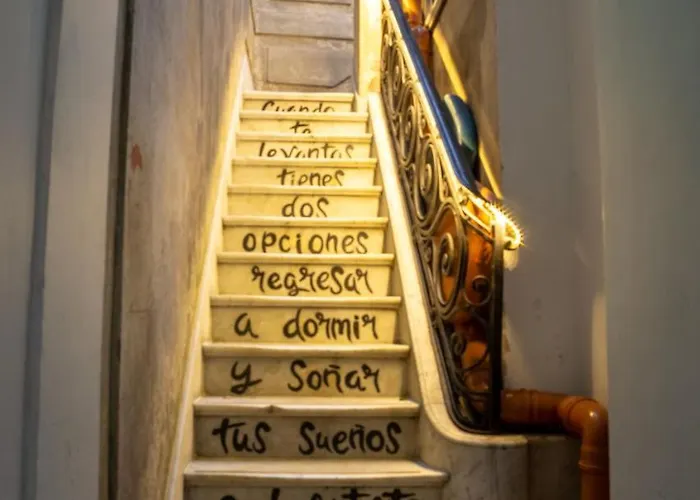 Cuando
te
levantas
tienes
dos
opciones
regresar
a dormir
y Soñar
tus sueños